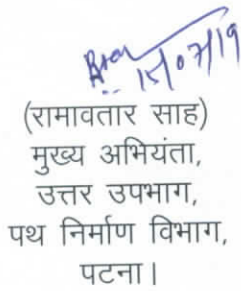 15/07/19
(रामावतार साह)
मुख्य अभियंता,
उत्तर उपभाग,
पथ निर्माण विभाग,
पटना।